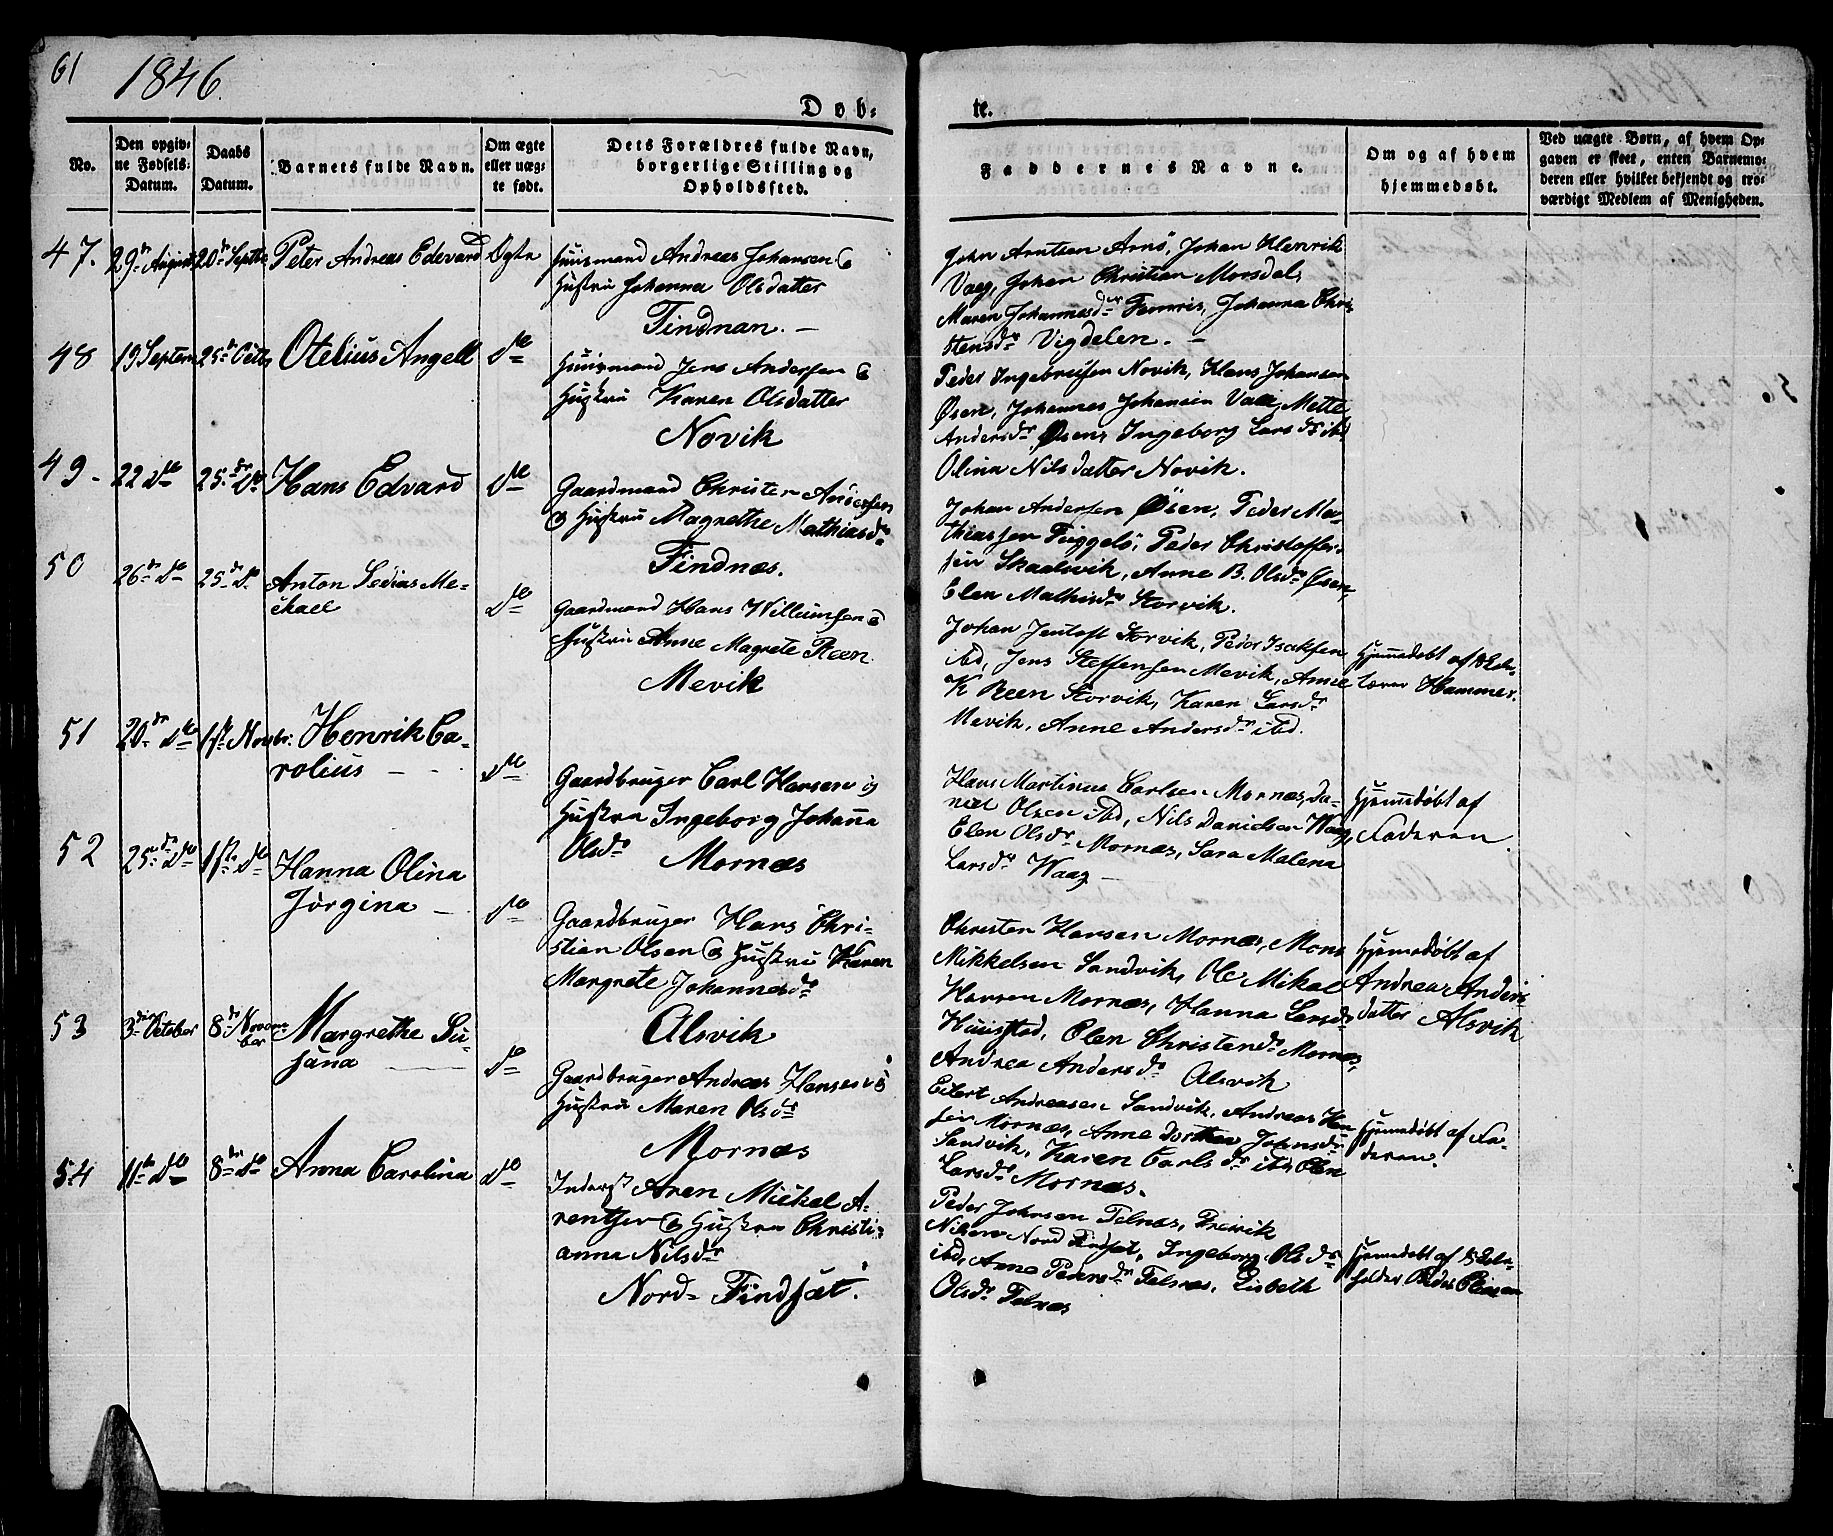 61 1846.
Døb-
te.
No.
Den opgiv-
ne Fødsels-
Datum.
Daabs
Datum.
Barnets fulde Navn.
Om ægte
eller uæg-
te født.
Dets Forældres fulde Navn,
borgerlige Stilling og
Opholdssted.
Faddernes Navne.
Om og af hvem
hjemmedøbt.
Ved uægte Børn, af hvem Op-
gaven er skeet, enten Barnemo-
deren eller hvilket bekjendt og tro-
værdigt Medlem af Menigheden.
47. 29de August 20de Septbr Peter Andreas Edevard Ægte
Huusmand Andreas Johansen &
Hustru Johanna Olsdatter
Findnan. —
John Arntsen Arnö, Johan Henrik
Vaag, Johan Christian Morsdal,
Maren Johannesdr Femris, Johanna Chri-
stensdr Vigdelen. —
48 19 Septem 25de Octbr Otelius Angell do
Huusmand Jens Andersen &
Hustru Karen Olsdatter
Novik
Peder Ingebrigtsen Novik, Hans Johansen
Øsen, Johannes Johansen Vaag, Mette
Andersdr Øsen, Ingeborg Larsdr ibd
Olina Nilsdatter Novik.
49. 22 do 25de do Hans Edvard do
Gaardmand Christen Andersen
& Hustru Magrethe Mathiasdr
Findnæs.
Johan Andersen Øsen, Peder Ma-
thiassen Fuggelö, Peder Christoffer-
sen Skaalsvik, Anne B. Olsdr Øsen,
Elen Mathisdr Storvik.
50 26de do 25de do Anton Sedias Me-
ikael
do
Gaardmand Hans Willumsen &
Hustru Anne Magrete Reen
Mevik
Johan Jentoft Storvik, Peder Isaksen
ibd, Jens Steffensen Mevik, Anne
K Reen Storvik, Karen Larsdr
Mevik, Anne Andersdr ibd.
Hjemmedøbt af Skole-
lærer Hammer.
51 20de do 1ste Novbr. Henrik Ca-
rolius — -
do
Gaardbruger Carl Hansen og
Hustru Ingeborg Johanna
Olsdr Mornæs
Hans Martinus Carlsen Mornæs, Da-
niel Olsen ibd, Nils Danielsen Waag,
Elen Olsdr Mornæs, Sara Malena
Larsdr Waag —
Hjemmedøbt af
Faderen.
52 25de do 1ste do Hanna Olina
Jørgina —
do
Gaardbruger Hans Chri-
stian Olsen & Hustru Karen
Margrete Johannesdr
Alsvik
Christen Hansen Mornæs, Mons
Mikkelsen Sandvik, Ole Mikal
Hansen Mornæs, Hanna Larsdr
Huustad, Elen Christensdr Mornæs
Andrea Andersdr Alsvik
Hjemmedøbt af
Andrea Anders
datter Alsvik
53 3die October 8de Novem-
ber
Margrethe Su-
sana
do
Gaardbruger Andreas Hansen og
Hustru Maren Olsdr
Mornæs
Eilert Andreasen Sandvik, Andreas Han
sen Mornæs, Anne Dorthea Johnsdr
Sandvik, Karen Carlsdr ibd Elen
Larsdr Mornæs.
Hjemmedøbt af Fa-
deren.
54 11te do 8de do Anna Carolina do
Inderst Aren Mickel A-
rentsen & Hustru Christi-
anna Nilsdr
Nord- Findset.
Peder Johnsen Telnæs, Fredrik
Nilsen Nord Findset, Ingeborg Olsdr
ibd, Anne Pedersdr Telnæs, Lisbeth
Olsdr Telnæs
Hjemmedøbt af Skole-
holder Peder